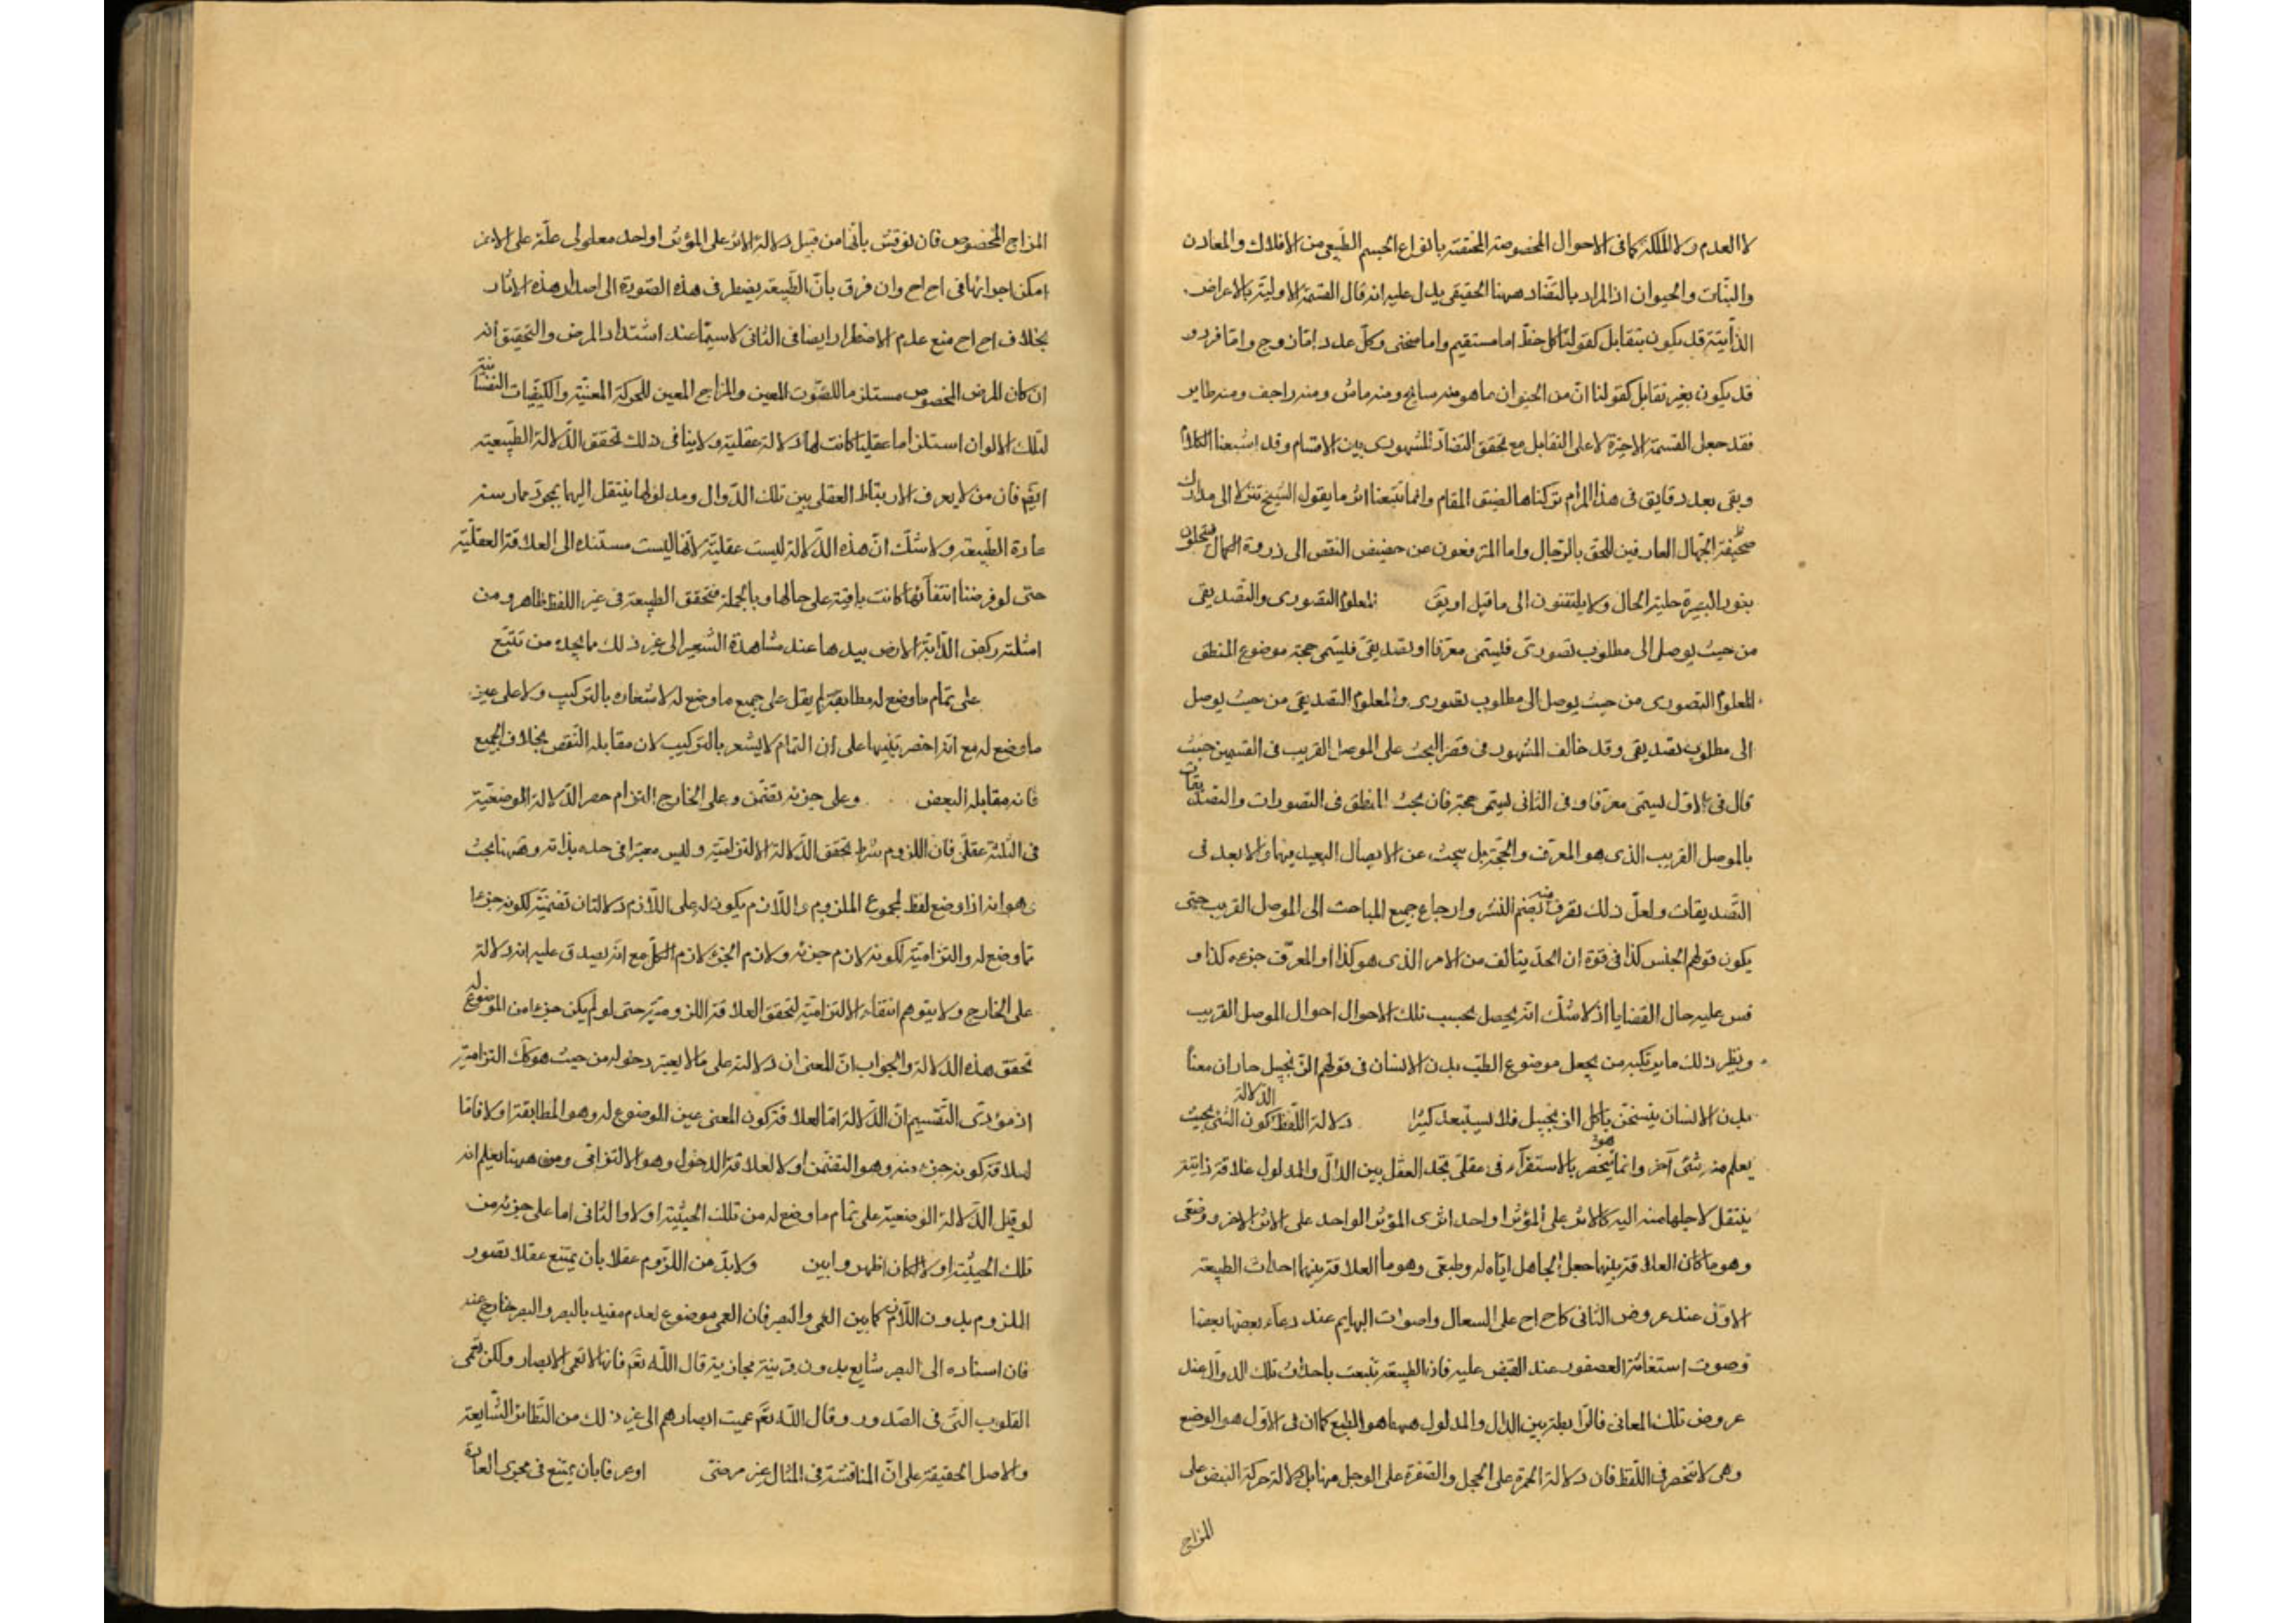 لا العدم ولا الملكة كما فى الاحوال المخصوصة المختصة بانواع الجسم الطبيعى من الافلاك والمعادن
والنبات والحيوان اذ المراد بالتضاد ههنا الحقيقى يدل عليه انه قال القسمة الاولية بالاعراض
الذاتية قد يكون بتقابل كقولنا كل خط اما مستقيم واما منحنى وكل عدد اما زوج واما فرد و
قد يكون بغير تقابل كقولنا ان من الحيوان ما هو منه سابح ومنه ماش ومنه زاحف ومنه طاير
فقد جعل القسمة الاخيرة لا على التقابل مع تحقق التضاد المشهورى بين الاقسام وقد اشبعنا الكلام
وبقى بعد دقايق فى هذا المرام تركناها لضيق المقام وانما تتبعنا اثر ما يقول الشيخ تنزلا الى مدارك
الجهال العارفين للحق بالرجال واما المترفعون عن حضيض النقص الى ذروة الكمال
بنور البصيرة حلية الحال ولا يلتفتون الى ما قيل او يق المعلوم التصورى والتصديقى
من حيث يوصل الى مطلوب تصورى فليسمى معرفا او تصديقى فليسمى حجة موضوع المنطق
المعلوم التصورى من حيث يوصل الى مطلوب تصورى والمعلوم التصديقى من حيث يوصل
الى مطلوب تصديقى وقد خالف المشهور فى قصر البحث على الموصل القريب فى القسمين حيث
قال فى الاول ليسمى معرفا وفى الثانى ليسمى حجة فان بحث المنطق فى التصورات والتصديقات
بالموصل القريب الذى هو المعرف والحجة بل يبحث عن الايصال البعيد فيهما والابعد فى
التصديقات ولعل ذلك تصرف منه لضم النشر وارجاع جميع المباحث الى الموصل القريب حتى
يكون قولهم الجنس كذا فى قوة ان الحد يتالف من الامر الذى هو كذا او المعرف جزءه كذا و
قس عليه حال القضايا اذ لا شك انه يحصل بحسب تلك الاحوال احوال الموصل القريب
ونظير ذلك ما يرتكبه من يجعل موضوع الطب بدن الانسان فى قولهم الزنجبيل حار ان معناه
بدن الانسان يتسخن باكل الزنجبيل فلا تستبعد كثيرا دلالة اللفظ الدلالة كون الشئ بحيث
يعلم منه شئ آخر وانما تنحصر بالاستقرآء فى عقلى يجد العقل بين الدال والمدلول علاقة ذاتية
ينتقل لاجلها منه اليه كالاثر على المؤثر او احد اثرى المؤثر الواحد على الاثر الاخر ووضعى
وهو ما كان العلاقة بينها جعل الجاعل اياه له وطبعى وهو ما العلاقة بينهما احداث الطبيعة
الاول عند عروض الثانى كاح اح على السعال واصوات البهايم عند دعاء بعضها بعضا
وصوت استغاثة العصفور عند القبض عليه فان الطبيعة تنبعث باحداث تلك الدوال عند
عروض تلك المعانى فالرابطة بين الدال والمدلول ههنا هو الطبع كما ان فى الاول هو الوضع
وهى لا تنحصر فى اللفظ فان دلالة الحمرة على الخجل والصفرة على الوجل منها بل دلالة حركة النبض على
المزاج
المزاج المخصوص فان نوقش بأنها من قبيل دلالة الاثر على المؤثر او احد معلولى علة على الاخر
امكن اجراؤها فى اح اح وان فرق بأن الطبيعة يضطر فى هذه الصورة الى اصدار هذه الاثار
بخلاف اح اح منع عدم الاضطرار ايضا فى الثانى لا سيما عند اشتداد المرض والتحقيق أنه
ان كان المرض المخصوص مستلزما للصوت المعين والمزاج المعين للحركة المعينة والكيفيات النفسانية
لتلك الالوان استلزاما عقليا كانت لها دلالة عقلية ولا ينافى ذلك تحقق الدلالة الطبيعية
ايضا فان من لا يعرف الارتباط العقلى بين تلك الدوال ومدلولها ينتقل اليها بمجرد ممارسة
عادة الطبيعة ولا شك ان هذه الدلالة ليست عقلية لانها ليست مستندة الى العلاقة العقلية
حتى لو فرضنا انتفاءها كانت باقية على حالها وبالجملة فتحقق الطبيعة فى غير اللفظ ظاهر ومن
امثلته ركض الدابة الارض بيدها عند مشاهدة الشعير الى غير ذلك ما يجده من تتبع
على تمام ما وضع له مطابقة لم يقل على جميع ما وضع له لاشعاره بالتركيب ولا على عين
ما وضع له مع انه اخصر تنبيها على ان التمام لا يشعر بالتركيب لان مقابله النقص بخلاف الجميع
فانه مقابله البعض وعلى جزئه تضمن وعلى الخارج التزام حصر الدلالة الوضعية
فى الثلثة عقلى فان اللزوم شرط تحقق الدلالة الالتزامية وليس معتبرا فى حده بذاته وههنا بحث
وهو انه اذا وضع لفظ لمجموع الملزوم واللازم يكون له على اللازم دلالتان تضمنية لكونه جزءا
مما وضع له والتزامية لكونه لازم جزئه ولازم الجزء لازم الكل مع انه يصدق عليه انه دلالة
على الخارج ولا يتوهم انتفاء الالتزامية لتحقق العلاقة اللزومية حتى لو لم يكن جزءا من الموضوع له
تحقق هذه الدلالة والجواب ان المعنى ان دلالته على ما لا يعتبر دخوله من حيث هو كك التزامية
اذ مؤدى التقسيم ان الدلالة اما لعلاقة كون المعنى عين الموضوع له وهو المطابقة او لا فاما
لعلاقة كونه جزء منه وهو التضمن او لا لعلاقة الدخول وهو الالتزامى ومن ههنا يعلم انه
لو قيل الدلالة الوضعية على تمام ما وضع له من تلك الحيثية او لا والثانى اما على جزئه من
تلك الحيثية او لا لكان اظهر وابين ولا بد من اللزوم عقلا بأن يمتنع عقلا تصور
الملزوم بدون اللازم كما بين العمى والبصر فان العمى موضوع لعدم مقيد بالبصر والبصر خارج عنه
فان اسناده الى البصر شايع بدون قرينة مجازية قال الله تعم فانها لا تعمى الابصار ولكن تعمى
القلوب التى فى الصدور وقال الله تعم عميت ابصارهم الى غير ذلك من النظائر الشايعة
والاصل الحقيقة على ان المناقشة فى المثال غير مرضى او عرفا بان يمتنع فى مجرى العادة